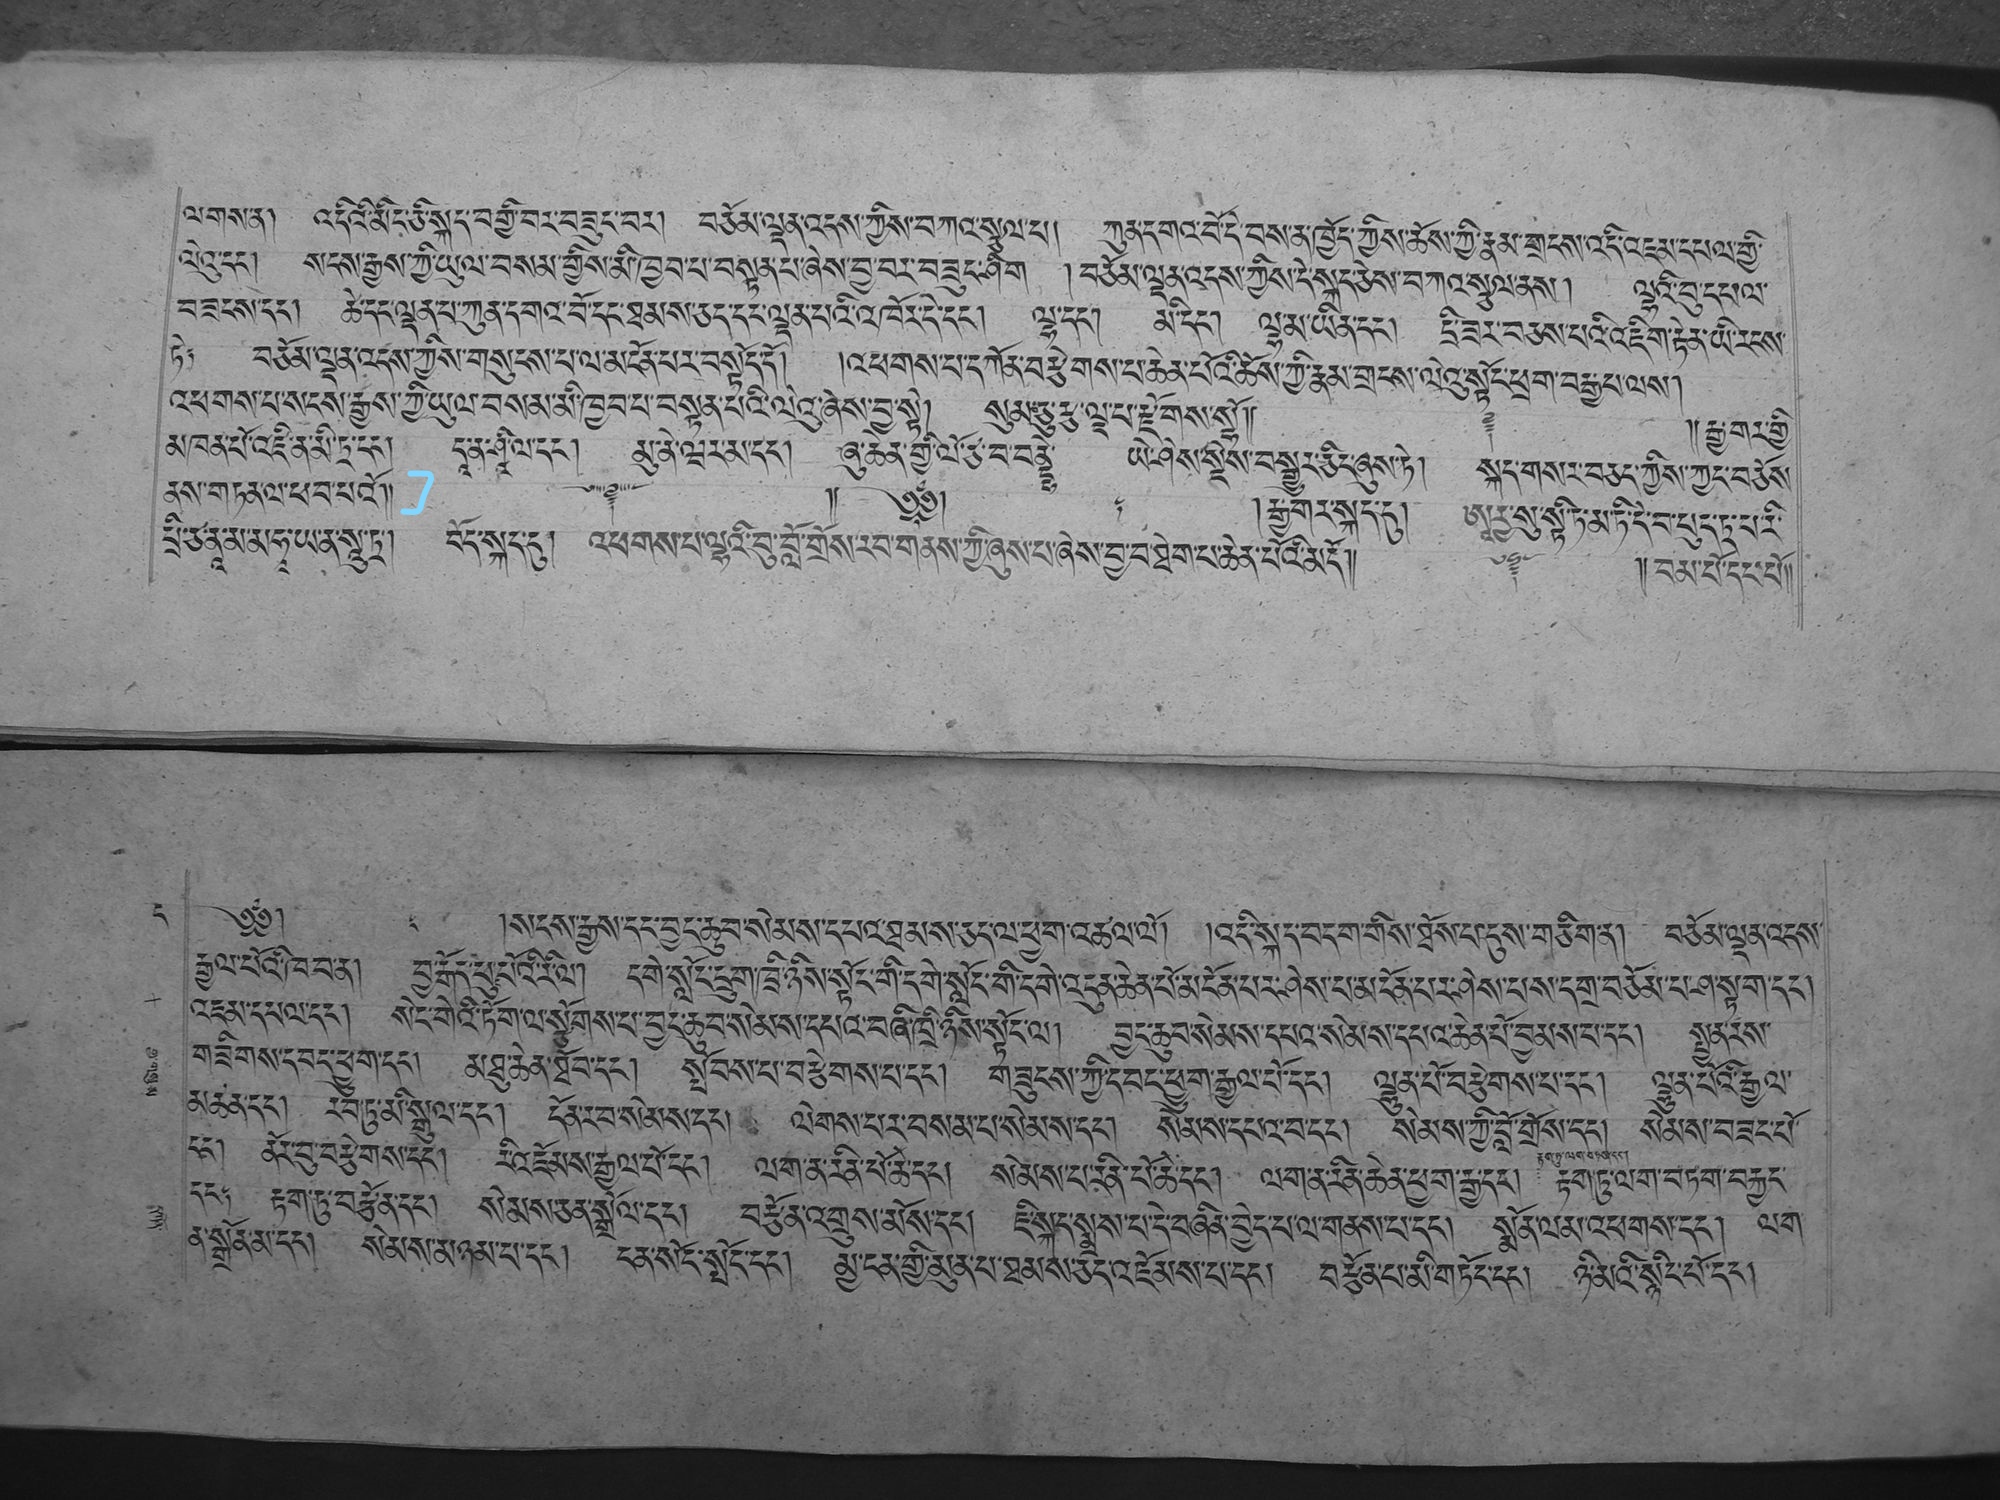 ལགས་ན། འདིའི་མིང་ཅི་སྐད་བགྱི་བར་བཟུང་བར། བཅོམ་ལྡན་འདས་ཀྱིས་བཀའ་སྩལ་པ། ཀུན་དགའ་བོ་དེ་བས་ན་ཁྱོད་ཀྱིས་ཆོས་ཀྱི་རྣམ་གྲངས་འདི་འཇམ་དཔལ་གྱི་
ལེའུ་དང་། སངས་རྒྱས་ཀྱི་ཡུལ་བསམ་གྱིས་མི་ཁྱབ་པ་བསྟན་པ་ཞེས་བྱ་བར་བཟུང་ཤིག །བཅོམ་ལྡན་འདས་ཀྱིས་དེ་སྐད་ཅེས་བཀའ་སྩལ་ནས། ལྷའི་བུ་དཔལ་
བཟངས་དང་། ཚེ་དང་ལྡན་པ་ཀུན་དགའ་བོ་དང་ཐམས་ཅད་དང་ལྡན་པའི་འཁོར་དེ་དང་། ལྷ་དང་། མི་དང་། ལྷ་མ་ཡིན་དང་། དྲི་ཟར་བཅས་པའི་འཇིག་རྟེན་ཡི་རངས་
ཏེ། བཅོམ་ལྡན་འདས་ཀྱིས་གསུངས་པ་ལ་མངོན་པར་བསྟོད་དོ། །འཕགས་པ་དཀོན་བརྩེགས་པ་ཆེན་པོའི་ཆོས་ཀྱི་རྣམ་གྲངས་ལེའུ་སྟོང་ཕྲག་བརྒྱ་པ་ལས།
འཕགས་པ་སངས་རྒྱས་ཀྱི་ཡུལ་བསམ་མི་ཁྱབ་པ་བསྟན་པའི་ལེའུ་ཞེས་བྱ་སྟེ། སུམ་ཅུ་རྩ་ལྔ་པ་རྫོགས་སྷོ།། །།རྒྱ་གར་གྱི
མཁན་པོ་འཛི་ན་མི་ཏྲ་དང་། དཱ་ན་ཤཱི་ལ་དང་། མུ་ནེ་ཝརམ་དང་། ཞུ་ཆེན་གྱི་ལོ་ཙ་བ་བནྡེ་ ཡེ་ཤེས་སྡེས་བསྒྱུར་ཅིང་ཞུས་ཏེ། སྐད་གསར་བཅད་ཀྱིས་ཀྱང་བཅོས་
ནས་གཏན་ལ་ཕབ་པའོ།། །། ༄༅། །རྒྱ་གར་སྐད་དུ། ཨཱརྱ་སུ་སྟི་ཏ་མ་ཏི་དེ་བ་པུ་ཏྲ་པ་རི་
པྲི་ཙནྣཱ་མ་མ་ཧཱ་ཡ་ན་སཱུ་ཏྲ། བོད་སྐད་དུ། འཕགས་པ་ལྷའི་བུ་བློ་གྲོས་རབ་གནས་ཀྱི་ཞུས་པ་ཞེས་བྱ་བ་ཐེག་པ་ཆེན་པོའི་མདོ།། །།བམ་པོ་དང་པོ།།
ད ༄༅། །སངས་རྒྱས་དང་བྱང་ཆུབ་སེམས་དཔའ་ཐམས་ཅད་ལ་ཕྱག་འཚལ་ལོ། །འདི་སྐད་བདག་གིས་ཐོས་པ་དུས་གཅིག་ན། བཅོམ་ལྡན་འདས་
རྒྱལ་པོའི་ཁབ་ན། བྱ་རྒོད་ཕུང་པོའི་རི་ལ། དགེ་སློང་དྲུག་ཁྲི་ཉིས་སྟོང་གི་དགེ་སློང་གི་དགེ་འདུན་ཆེན་པོ་མངོན་པར་ཤེས་པ་མངོན་པར་ཤེས་པས་དགྲ་བཅོམ་པ་ཤ་སྟག་དང་།
འཇམ་དཔལ་དང་། སེང་གེའི་ཏོག་ལ་སྩོགས་པ་བྱང་ཆུབ་སེམས་དཔའ་བཞི་ཁྲི་ཉིས་སྟོང་ལ། བྱང་ཆུབ་སེམས་དཔའ་སེམས་དཔའ་ཆེན་པོ་བྱམས་པ་དང་། སྤྱན་རས་
གཟིགས་དབང་ཕྱུག་དང་། མཐུ་ཆེན་ཐོབ་དང་། སྤོབས་པ་བརྩེགས་པ་དང་། གཟུངས་ཀྱི་དབང་ཕྱུག་རྒྱལ་པོ་དང་། ལྷུན་པོ་བརྩེགས་པ་དང་། ལྷུན་པོའི་རྒྱལ་
མཚན་དང་། རབ་ཏུ་མི་སྒུལ་དང་། དོན་རབ་སེམས་དང་། ལེགས་པར་བསམ་པ་སེམས་དང་། སེམས་དཔའ་བ་དང་། སེམས་ཀྱི་བློ་གྲོས་དང་། སེམས་བཟང་པོ་
དང་། ནོར་བུ་བརྩེགས་དང་། རི་འཇོམས་རྒྱལ་པོ་དང་། ལག་ན་རིན་པོ་ཆེ་དང་། སེམས་པ་རིན་པོ་ཆེ་དང་། ལག་ན་རིན་ཆེན་ཕྱག་རྒྱ་དང་། རྟག་ཏུ་ལག་བཏག་བརྐྱང་
དང་། རྟག་ཏུ་བརྩོན་དང་། སེམས་ཅན་སྒྲོལ་དང་། བརྩོན་འགྲུས་མོས་དང་། ཇི་སྐད་སྨྲས་པ་དེ་བཞིན་བྱེད་པ་ལ་གནས་པ་དང་། སྨོན་ལམ་འཕགས་དང་། ལག
ན་སྒྲོན་མ་དང་། སེམས་མ་ཉམ་པ་དང་། ངན་སོང་སྤོང་དང་། མྱ་ངན་གྱི་མུན་པ་ཐམས་ཅད་འཇོམས་པ་དང་། བརྩོན་པ་མི་གཏོང་དང་། ཉི་མའི་སྙིང་པོ་དང་།